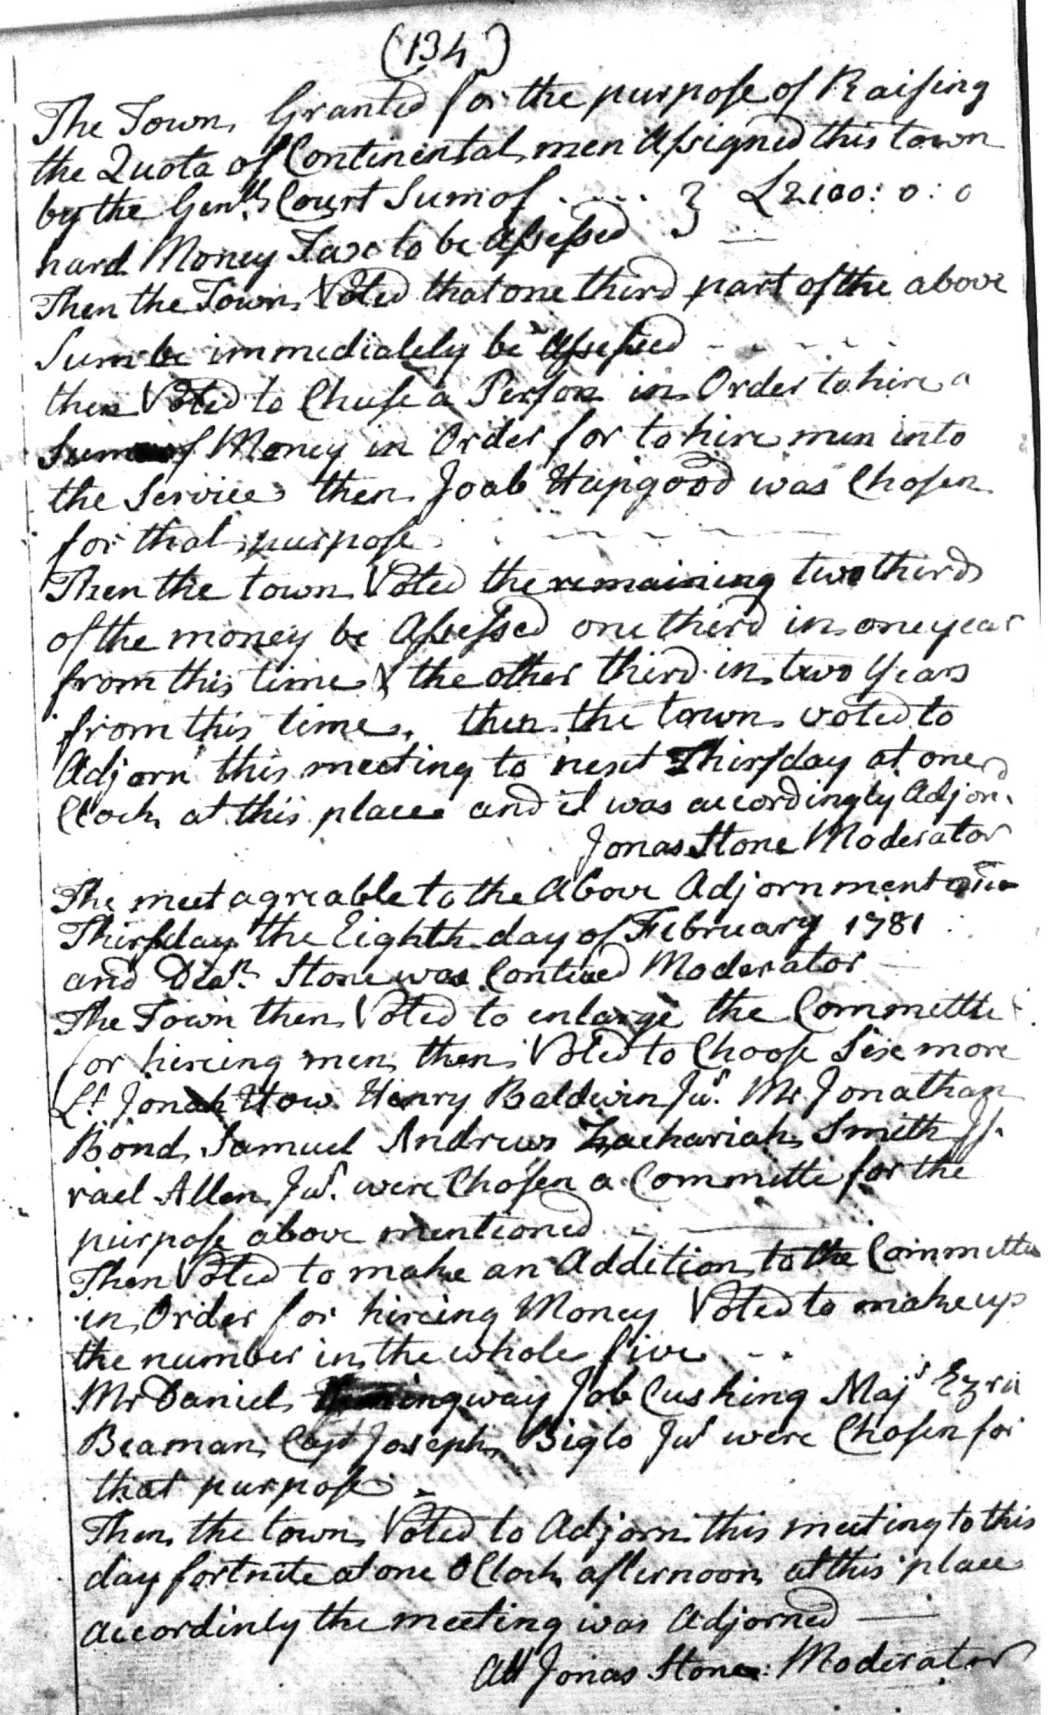 (134)
The Town Granted for the purpose of Raising
the Quota of Continental men Assigned this town
by the Genll Court Sum of . . . . } £2100: 0: 0
hard Money Tax to be Assessed
Then the Town Voted that one third part of the above
Sum be immediately be Assessed - - - - -
then Voted to Chuse a Person in Order to hire a
Sum of Money in Order for to hire men into
the Service then Joab Hapgood was Chosen
for that purpose
Then the town Voted the remaining two thirds
of the money be Assessed one third in one year
from this time & the other third in two Years
from this time. then the town voted to
Adjorn this meeting to next Thirsday at one
Clock at this place and it was accordingly Adjorn
Jonas Stone Moderator
The meet agreable to the Above Adjornment
Thirsday the Eighth day of February 1781
and Dean Stone was Contued Moderator
The Town then Voted to enlarge the Committe
for hireing men then Voted to Choose Six more
Lt Jonah How Henry Baldwin Jur. Mr Jonathan
Bond Samuel Andrews Zachariah Smith Is-
rael Allen Jur. were Chosen a Committe for the
purpose above mentioned
Then Voted to make an Addition to the Committe
in Order for hireing Money Voted to make up
the number in the whole five - .
Mr Daniel Hemingway Job Cushing Majr Ezra
Beaman Capt Joseph Biglo Jur were Chosen for
that purpose -
Then the town Voted to Adjorn this meeting to this
day fortnite at one OClock afternoon at this place
accordinly the meeting was Adjorned —
Att Jonas Stone: Moderator